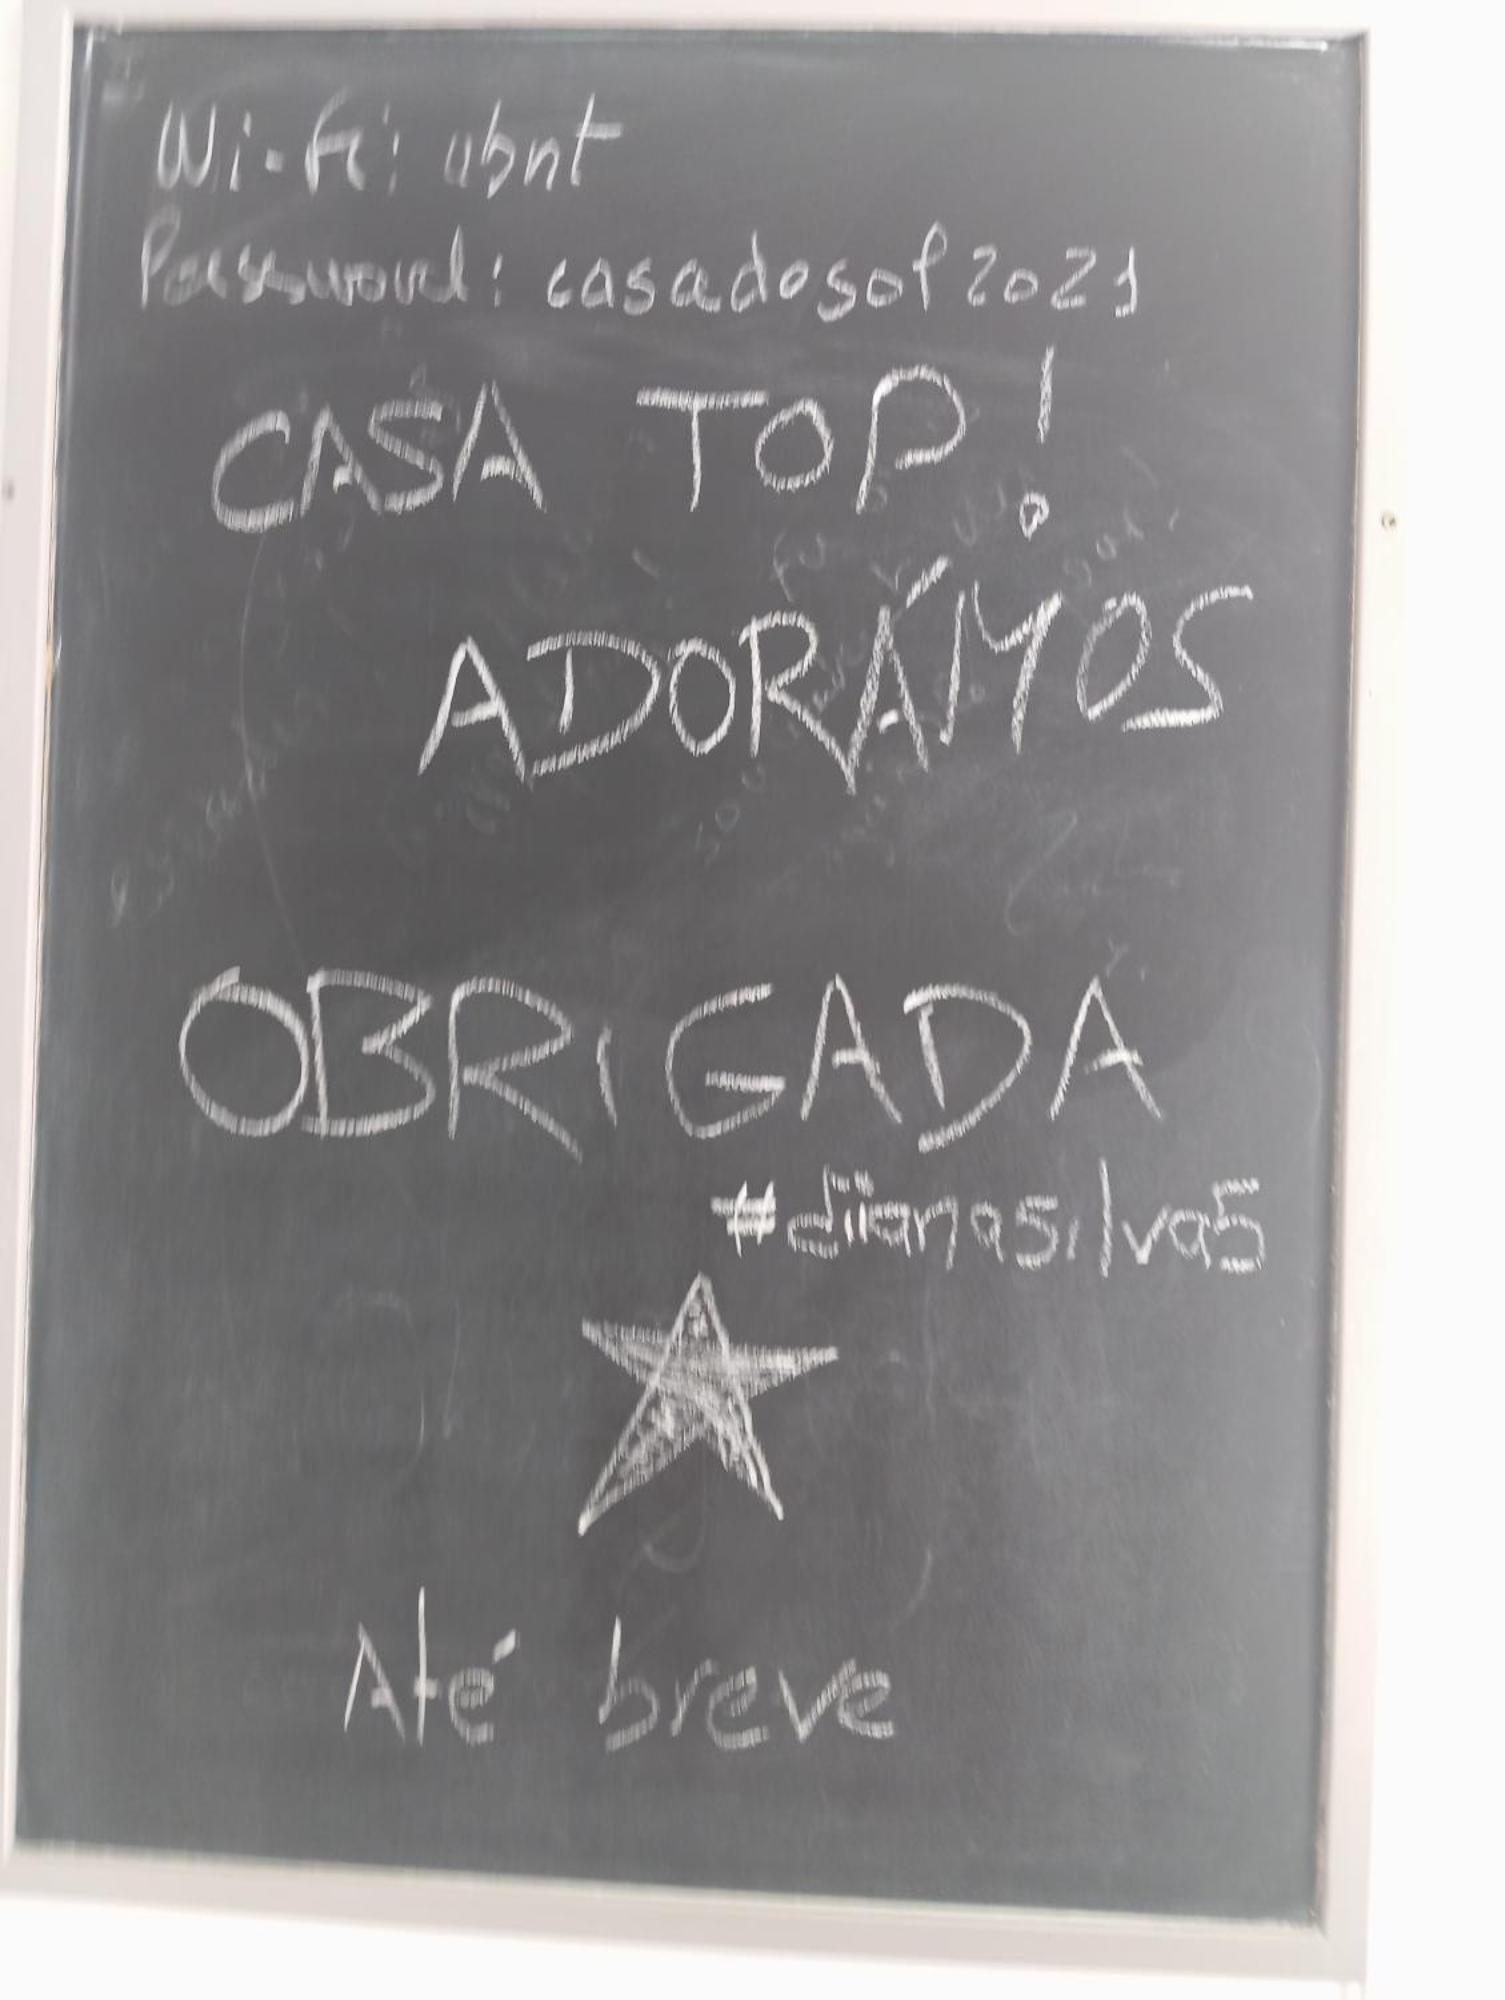 Wi-Fi: ubnt
Password: casadosol2021
CASA TOP!
ADORÁMOS
OBRIGADA
#diianasilva5
Até breve